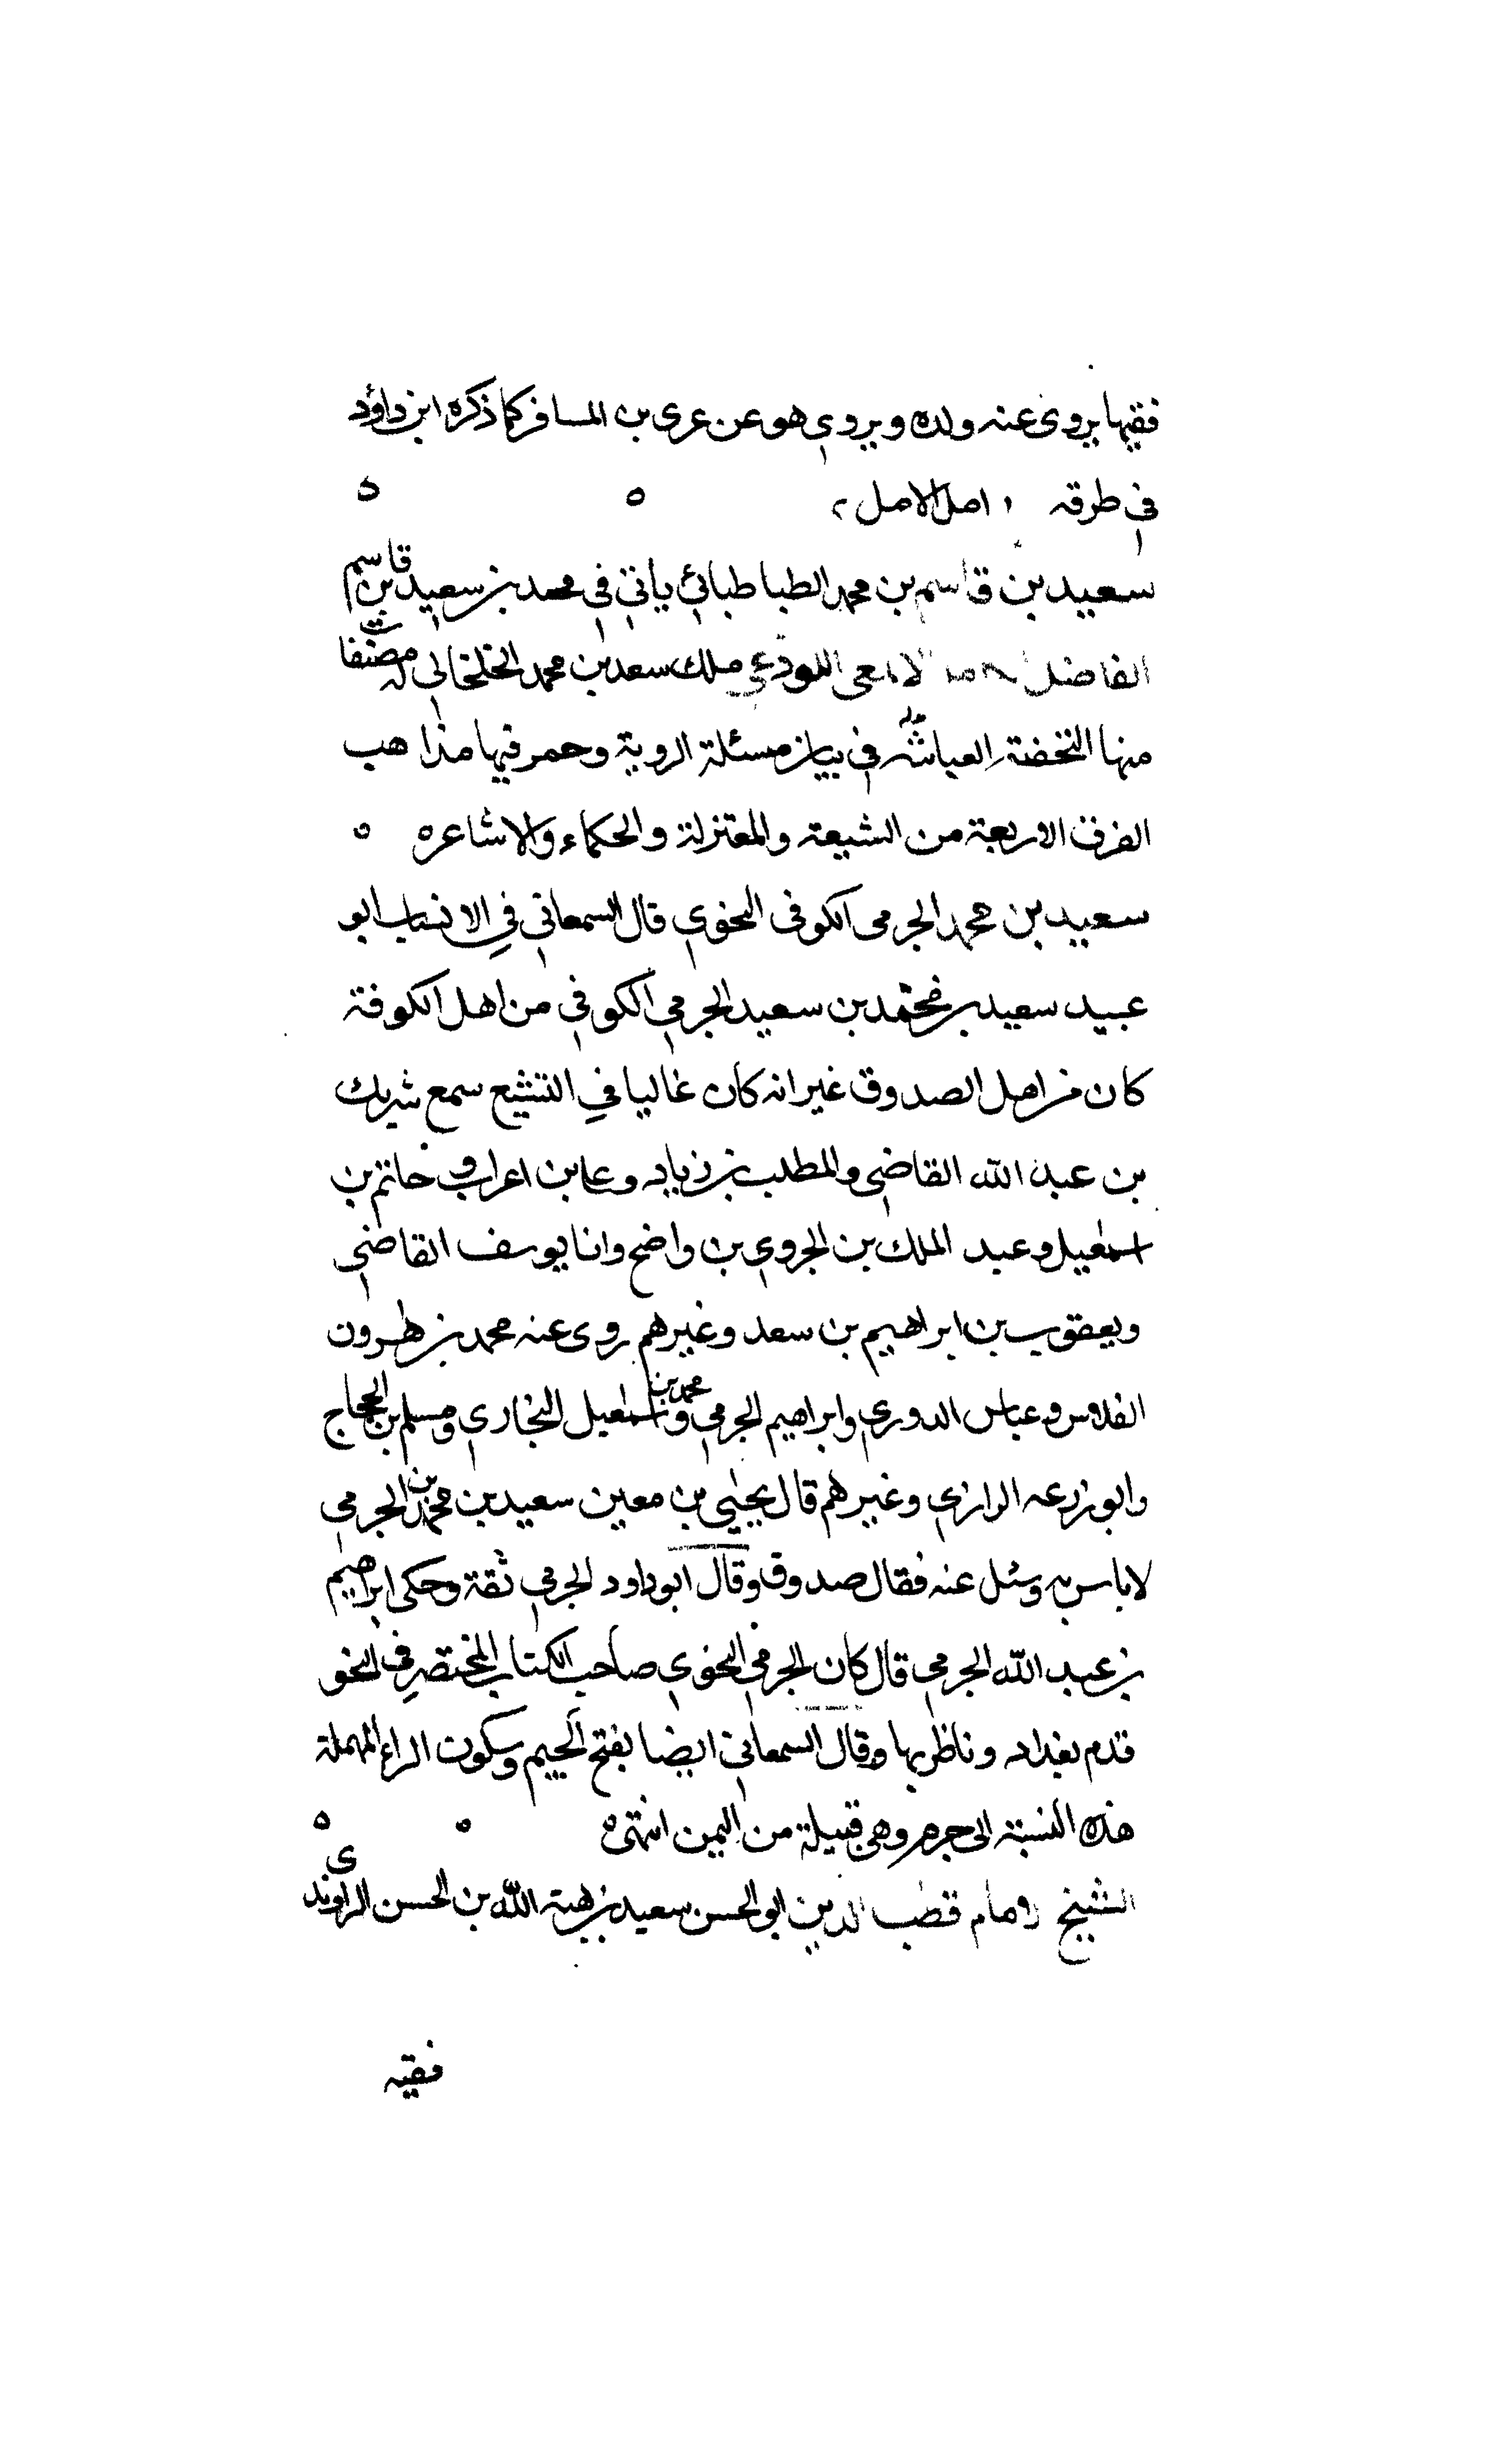 فقيها يروى عنه ولده ويروي هو عن عربى بن المسافر كما ذكره ابن داؤد
في طرقه امل الامل
سعيد بن قاسم بن محمد الطباطبائي ياتي في محمد بن سعيد بن قاسم
الفاضل الالمعى اللوذعي ملك سعد بن محمد الخلخالي له مصنفات
منها التحفة العباشيه في بيان مسئلة الروية وحصر فيها مذاهب
الفرق الاربعة من الشيعه والمعتزلة والحكماء والاشاعره
سعيد بن محمد الجرمى الكوفى النحوي قال السمعاني في الانساب ابو
عبيد سعيد بن محمد بن سعيد الجرمي الكوفي من اهل الكوفة
كان من اهل الصدوق غير انه كان غاليا في التشيع سمع شريك
بن عبد الله القاضي والمطلب بن زياد وعلي بن اعراب وحاتم بن
اسمعيل وعبد الملك بن الجروي بن واضح وابا يوسف القاضي
ويعقوب بن ابراهيم بن سعد وغيرهم روى عنه محمد بن هرون
الفلاس وعباس الدوري وابراهيم الجرمي ومحمد بن اسمعيل البخاري ومسلم بن الحجاج
وابو زرعه الرازي وغيرهم قال يحيى بن معين سعيد بن محمد بن الجرمي
لاباس به وسئل عنه فقال صدوق وقال ابو داود الجرمي ثقة وحكى ابراهيم
بن عبد الله الجرمي قال كان الجرمي النحوي صاحب الكتاب المختصر في النحو
قدم بغداد وناظر بها وقال السمعاني ايضا بفتح الجيم وسكون الراء المهملة
هذه النسبة الى جرم وهي قبيلة من اليمن انتهى
الشيخ امام قطب الدين ابو الحسن سعيد بن هبة الله بن الحسن الراوندي
فقيه